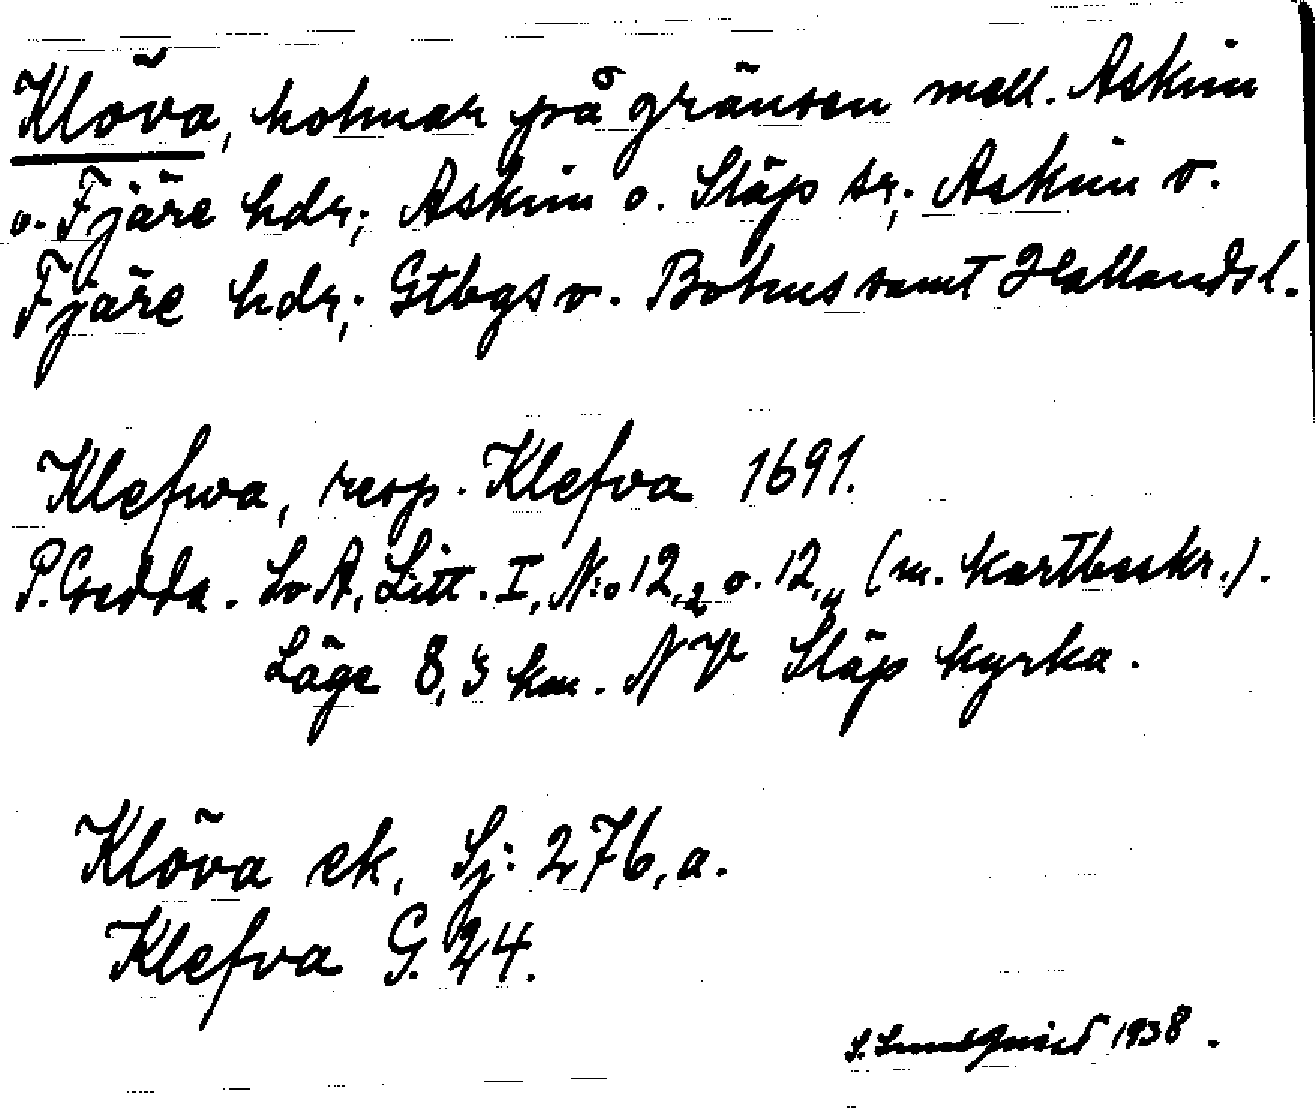 Klöva, holmar på gränsen mell. Askim
o. Fjäre hdr; Askim o. Släp sr; Askim o.
Fjäre hdr; Gtbgs o. Bohus samt Hallandsl.
Klefwa, resp. Klefva 1691.
P. Gedda. LvA, Litt. I, N:o 12,2 o. 12,4 (m. kartbeskr.).
Läge 8,3 km. NV Släp kyrka.
Klöva ek, Sj: 276, a.
Klefva G. 24.
1938.